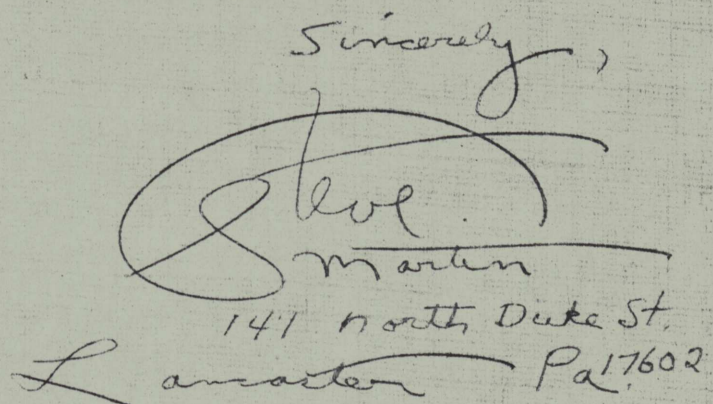 Sincerely,
Steve
Martin
141 North Duke St.
Lancaster Pa. 17602